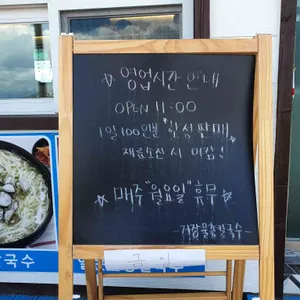 ☆ 영업시간 안내 ☆
OPEN 11:00
1일 100인분 "한정판매"
재료소진 시 마감!
☆ 매주 "월요일" 휴무 ☆
칼국수